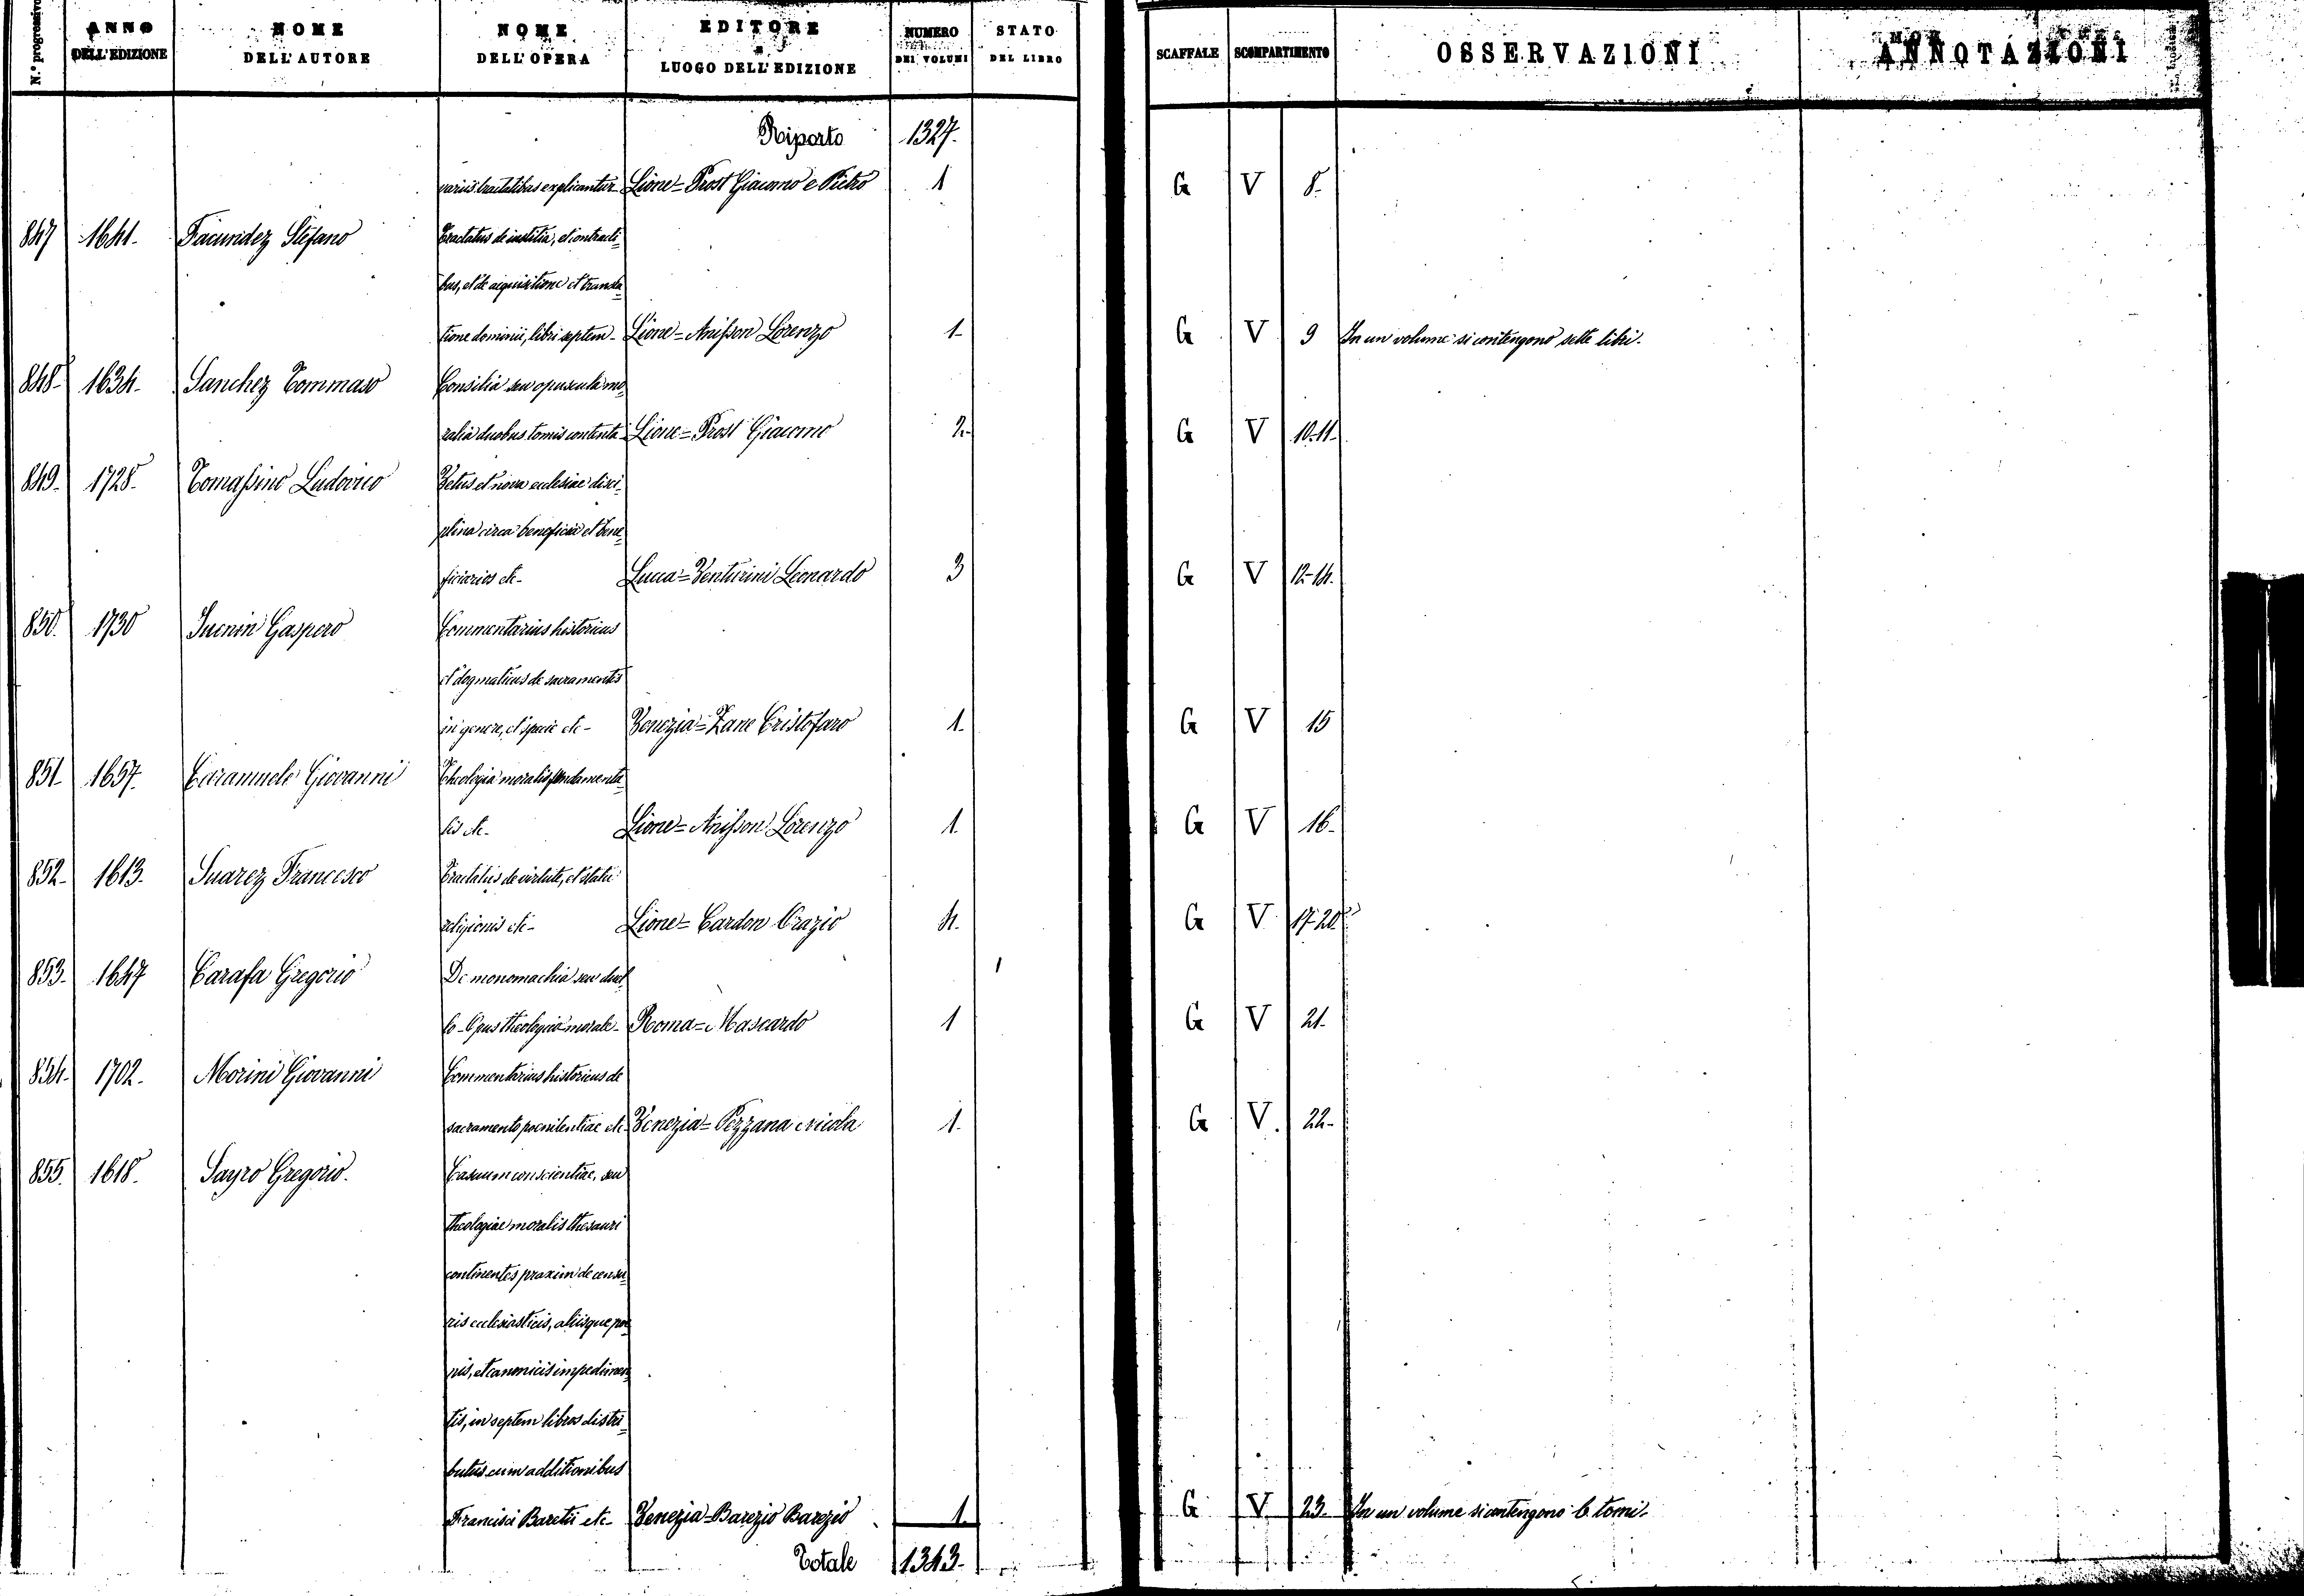 N.° progressivo | ANNO DELL'EDIZIONE | NOME DELL'AUTORE | NOME DELL'OPERA | EDITORE e LUOGO DELL'EDIZIONE | NUMERO DEI VOLUMI | STATO DEL LIBRO | SCAFFALE | SCOMPARTIMENTO | OSSERVAZIONI | ANNOTAZIONI
Riporto 1327.
variis tractatibus explicantur Lione = Prost Giacomo e Pietro 1 G V 8.
847 1641. Facundez Stefano Tractatus de iustitia, et contracti=
bus, et de acquisitione et transla=
tione dominii, libri septem - Lione = Anisson Lorenzo 1- G V 9 In un volume si contengono sette libri.
848- 1634. Sanchez Tommaso Consilia seu opuscula mo=
ralia duobus tomis contenta Lione = Prost Giacomo 2- G V 10-11.
849. 1728. Tomassino Ludovico Vetus et nova ecclesiae disci=
plina circa beneficia et bene=
ficiarios etc- Lucca = Venturini Leonardo 3 G V 12-14.
850. 1730 Juenin Gaspero Commentarius historicus
et dogmaticus de sacramentis
in genere, et specie etc - Venezia = Zane Cristofaro 1. G V 15
851. 1657. Caramuele Giovanni Theologia moralis fundamenta=
lis etc. Lione = Anisson Lorenzo 1. G V 16-
852- 1613. Suarez Francesco Tractatus de virtute, et statu
religionis etc- Lione = Cardon Orazio 4. G V 17-20
853. 1647 Carafa Gregorio De monomachia seu duel=
lo - Opus theologico morale - Roma = Mascardo 1 G V 21-
854. 1702. Morini Giovanni Commentarius historicus de
sacramento poenitentiae etc- Venezia = Pezzana Nicola 1. G V. 22-
855. 1618. Sayro Gregorio. Casuum conscientiae, seu
theologiae moralis thesauri
continentes praxim de censu=
ris ecclesiasticis, aliisque poe=
nis, et canonicis impedimen=
tis, in septem libros distri=
butus cum additionibus
Francisci Baretii etc- Venezia = Barezio Barezio 1. G V 23- In un volume si contengono 6 tomi.
Totale 1343-